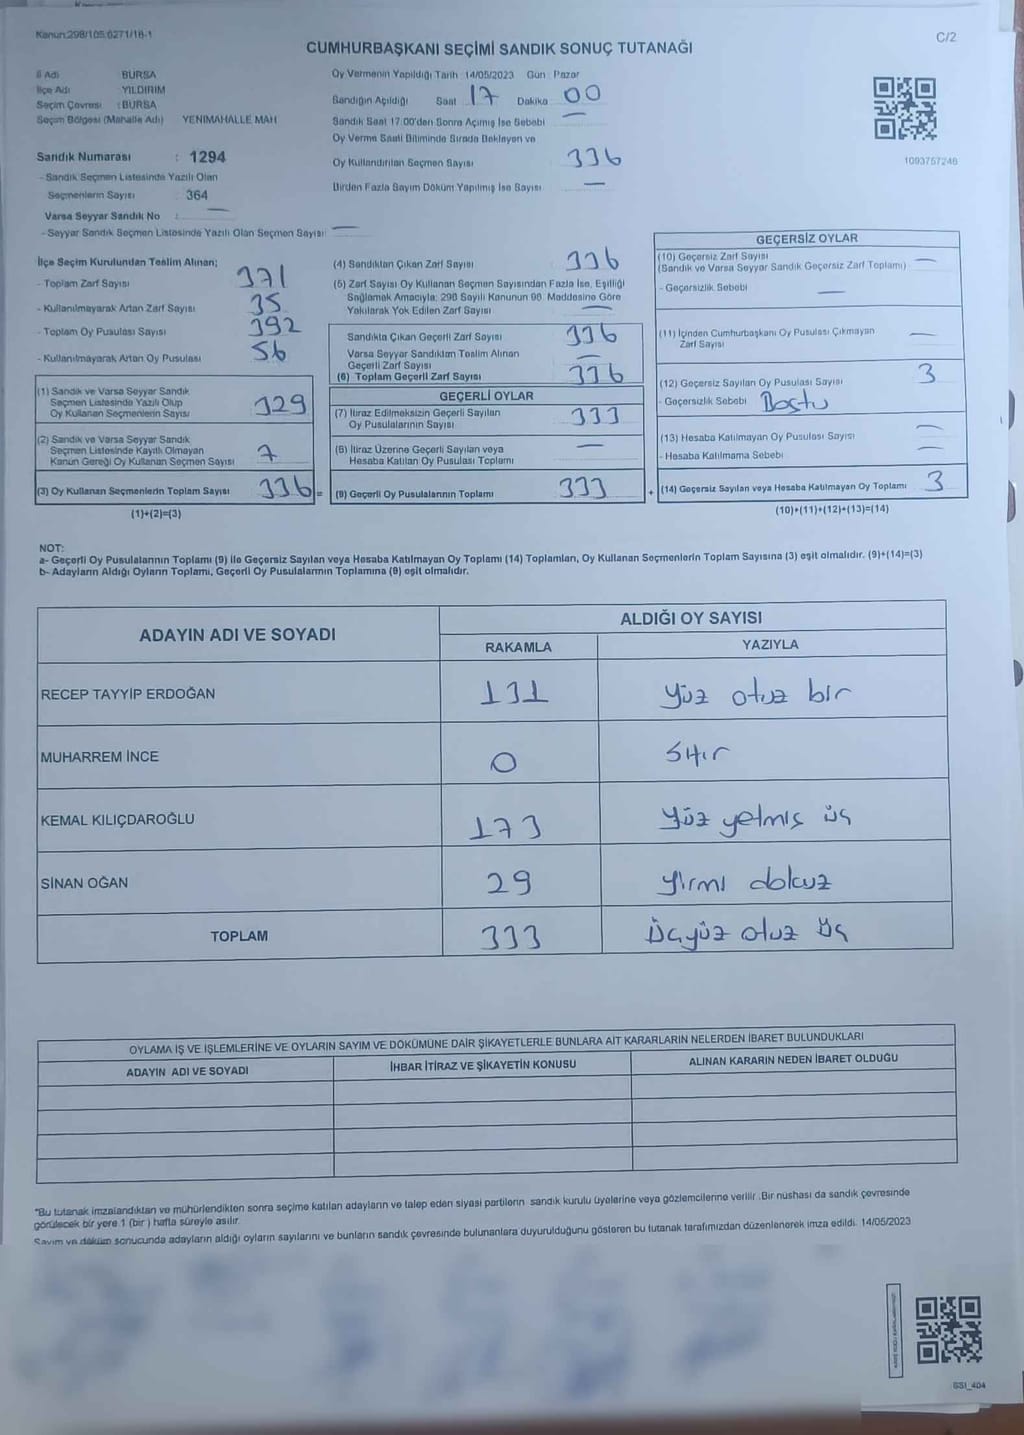 Kanun:298/105,6271/18-1
C/2
CUMHURBAŞKANI SEÇİMİ SANDIK SONUÇ TUTANAĞI
İl Adı BURSA
İlçe Adı YILDIRIM
Seçim Çevresi : BURSA
Seçim Bölgesi (Mahalle Adı) YENİMAHALLE MAH
Sandık Numarası : 1294
- Sandık Seçmen Listesinde Yazılı Olan
Seçmenlerin Sayısı : 364
Varsa Seyyar Sandık No : —
- Seyyar Sandık Seçmen Listesinde Yazılı Olan Seçmen Sayısı —
Oy Vermenin Yapıldığı Tarih 14/05/2023 Gün : Pazar
Sandığın Açıldığı Saat 17 Dakika 00
Sandık Saat 17:00'den Sonra Açımış İse Sebebi —
Oy Verme Saati Bitiminde Sırada Bekleyen ve
Oy Kullandırılan Seçmen Sayısı 336
Birden Fazla Sayım Döküm Yapılmış İse Sayısı —
1093757246
İlçe Seçim Kurulundan Teslim Alınan;
- Toplam Zarf Sayısı 371
- Kullanılmayarak Artan Zarf Sayısı 35
- Toplam Oy Pusulası Sayısı 392
- Kullanılmayarak Artan Oy Pusulası 56
(1) Sandık ve Varsa Seyyar Sandık
Seçmen Listesinde Yazılı Olup
Oy Kullanan Seçmenlerin Sayısı 329
(2) Sandık ve Varsa Seyyar Sandık
Seçmen Listesinde Kayıtlı Olmayan
Kanun Gereği Oy Kullanan Seçmen Sayısı 7
(3) Oy Kullanan Seçmenlerin Toplam Sayısı 336 =
(1)+(2)=(3)
(4) Sandıktan Çıkan Zarf Sayısı 336
(5) Zarf Sayısı Oy Kullanan Seçmen Sayısından Fazla İse, Eşitliği
Sağlamak Amacıyla; 298 Sayılı Kanunun 98. Maddesine Göre
Yakılarak Yok Edilen Zarf Sayısı —
Sandıkta Çıkan Geçerli Zarf Sayısı 336
Varsa Seyyar Sandıktan Teslim Alınan
Geçerli Zarf Sayısı —
(6) Toplam Geçerli Zarf Sayısı 336
GEÇERLİ OYLAR
(7) İtiraz Edilmeksizin Geçerli Sayılan
Oy Pusulalarının Sayısı 333
(8) İtiraz Üzerine Geçerli Sayılan veya
Hesaba Katılan Oy Pusulası Toplamı —
(9) Geçerli Oy Pusulalarının Toplamı 333 +
GEÇERSİZ OYLAR
(10) Geçersiz Zarf Sayısı —
(Sandık ve Varsa Seyyar Sandık Geçersiz Zarf Toplamı)
- Geçersizlik Sebebi —
(11) İçinden Cumhurbaşkanı Oy Pusulası Çıkmayan
Zarf Sayısı —
(12) Geçersiz Sayılan Oy Pusulası Sayısı 3
- Geçersizlik Sebebi Boştu
(13) Hesaba Katılmayan Oy Pusulası Sayısı —
- Hesaba Katılmama Sebebi —
(14) Geçersiz Sayılan veya Hesaba Katılmayan Oy Toplamı 3
(10)+(11)+(12)+(13)=(14)
NOT:
a- Geçerli Oy Pusulalarının Toplamı (9) ile Geçersiz Sayılan veya Hesaba Katılmayan Oy Toplamı (14) Toplamları, Oy Kullanan Seçmenlerin Toplam Sayısına (3) eşit olmalıdır. (9)+(14)=(3)
b- Adayların Aldığı Oyların Toplamı, Geçerli Oy Pusulalarının Toplamına (9) eşit olmalıdır.
ADAYIN ADI VE SOYADI
ALDIĞI OY SAYISI
RAKAMLA YAZIYLA
RECEP TAYYİP ERDOĞAN 131 Yüz otuz bir
MUHARREM İNCE 0 Sıfır
KEMAL KILIÇDAROĞLU 173 Yüz yetmiş üç
SİNAN OĞAN 29 Yirmi dokuz
TOPLAM 333 Üçyüz otuz üç
OYLAMA İŞ VE İŞLEMLERİNE VE OYLARIN SAYIM VE DÖKÜMÜNE DAİR ŞİKAYETLERLE BUNLARA AİT KARARLARIN NELERDEN İBARET BULUNDUKLARI
ADAYIN ADI VE SOYADI İHBAR İTİRAZ VE ŞİKAYETİN KONUSU ALINAN KARARIN NEDEN İBARET OLDUĞU
"Bu tutanak imzalandıktan ve mühürlendikten sonra seçime katılan adayların ve talep eden siyasi partilerin sandık kurulu üyelerine veya gözlemcilerine verilir .Bir nüshası da sandık çevresinde
görülecek bir yere 1 (bir ) hafta süreyle asılır.
Sayım ve döküm sonucunda adayların aldığı oyların sayılarını ve bunların sandık çevresinde bulunanlara duyurulduğunu gösteren bu tutanak tarafımızdan düzenlenerek imza edildi. 14/05/2023
SSI_404